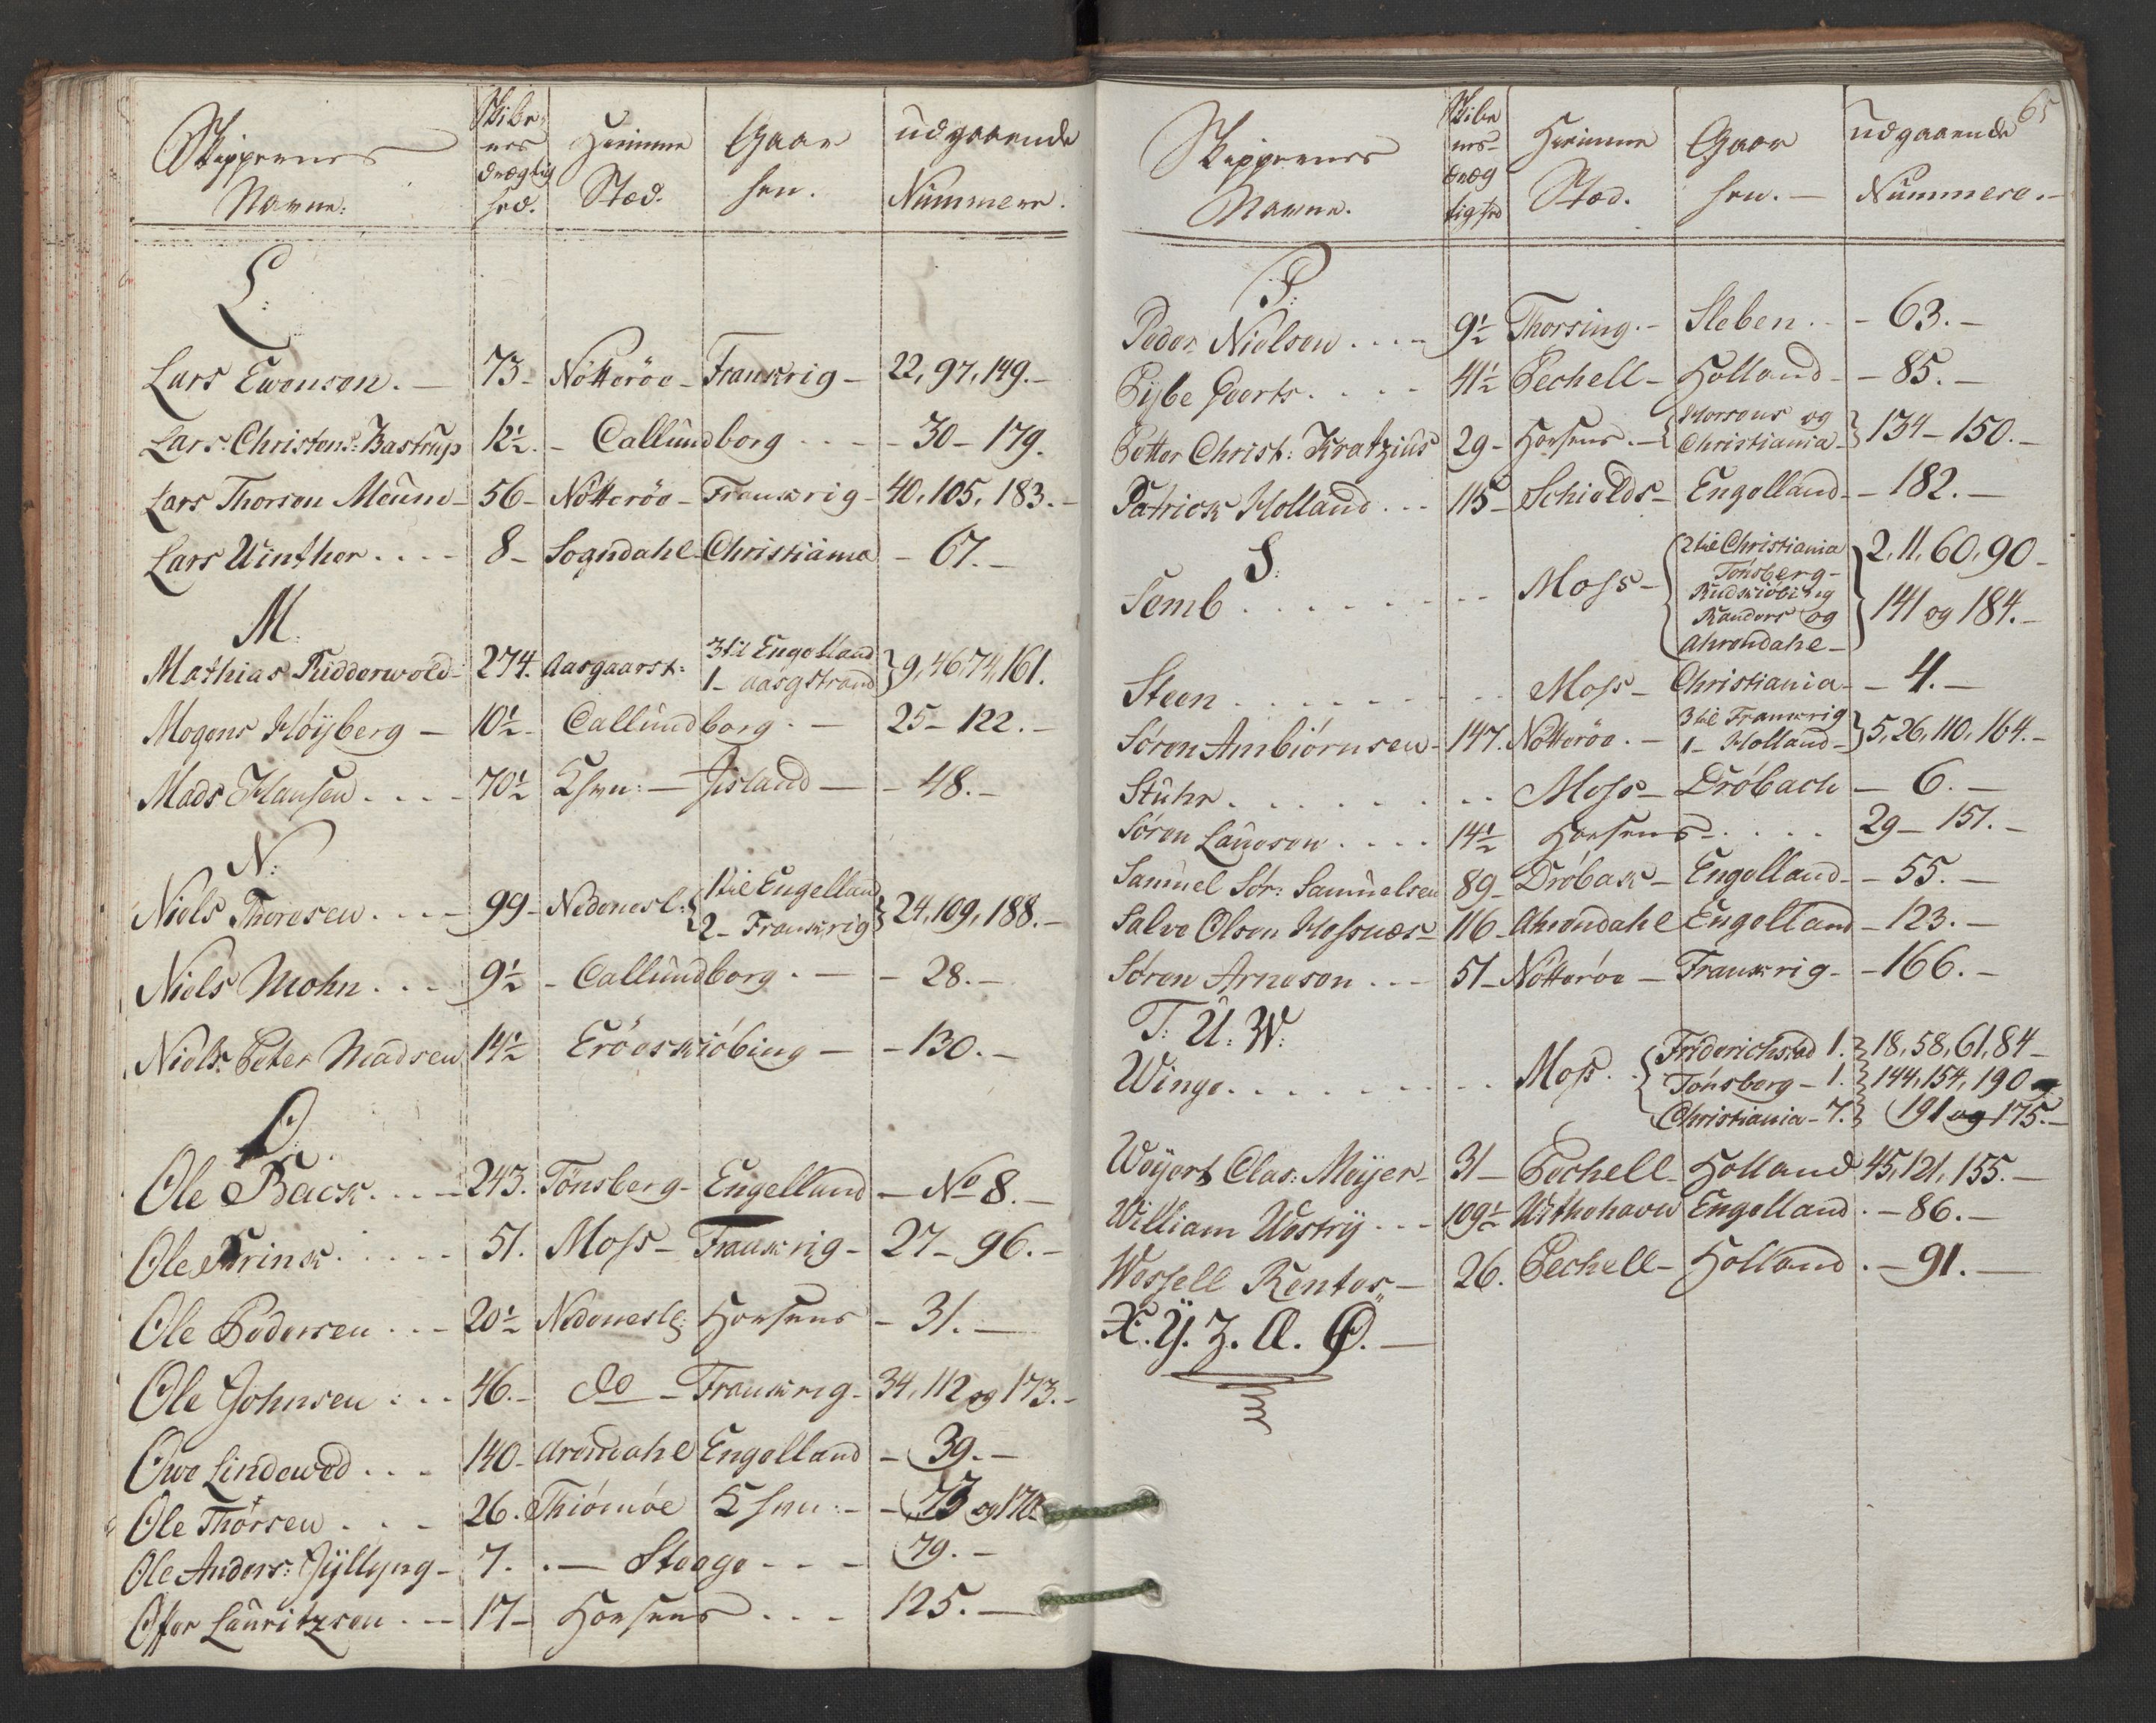 Skippernes Navne: | Skibe nes drægtig hed. | Hiemme Stæd. | Gaar hen. | udgaaende Nummere.
L:
Lars Ewensen. — 73 — Nötteröe — Frankrig — 22, 97, 149. —
Lars Christens: Bastrup 12½. — Callundborg - - - 30 — 179.
Lars Thorsen Moûm — 56 — Nötteröe — Frankrig — 40, 105, 183. —
Lars Winther . . . . 8 — Sogndahl — Christiania — 67. —
M.
Mathias Ridderwold — 274. Aasgaarst:
3 til Engelland
1 — aasgstrand } 9, 46, 74, 161.
Mogens Höijberg — 10½ — Callundborg. — 25 — 122. —
Mads Hansen . . . . 70½ Khvn: — Jisland — — 48. —
N:
Niels Thoresen . . . . 99 — Nedenesl: {
1 til Engelland
2 — Frankrig } 24, 109, 188. —
Niels Mohn . . . 9½ — Callundborg. — — 28. —
Niels Peter Madsen 14½ Eröeskiöbing — — 130. —
O:
Ole Back. . . — 243. Tönsberg — Engelland — No 8. —
Ole Brinck . . . . . 51. Moss — Frankrig — 27 — 96. —
Ole Pedersen . . . 20½ Nedenesl: Horsens — 31. —
Ole Johnsen . . . 46. — do — Frankrig — 34, 112 og 173. —
Owe Lindewed . . . 140 — Arendahl Engelland — 39. —
Ole Thorsen . . . 26. Thiömöe Khvn: — — 73 og 170
Ole Anders: Jÿllÿng — 7. . — Steege - - - 79. —
Offer Lauritzsen . — 17 — Horsens . . . 125. —
65
Skippernes Navne. | Skibe nes dræg tighed | Hiemme Stæd. | Gaar hen. — | udgaaende Nummere. —
P:
Peder Nielsen . . . . 9½ Thorsing. — Sleben. . — 63. —
Pijbe Geerts . . . . 41½ Pechell — Holland — — 85. —
Petter Christ: Kratzius 29 — Horsens. — {
Horsens og
Christiania } 134 — 150. —
Patrick Holland . . . 115 — Schields — Engelland — — 182. —
S:
Semb . . . . . . . . . Moss — {
2 til Christiania
Tönsberg —
Rudkiöbing
Randers og
Ahrendahl — } 2, 11, 60, 90 —
141 og 184. —
Steen . . . . . . . . . Moss — Christiania — — 4. —
Sören Ambiörnsen — 147. Nötteröe. —
3 til Frankrig
1 — Holland — } 5, 26, 110, 164. —
Stuhr . . . . . . . . . Moss — Dröbach — 6. —
Sören Laugesen . . . . 14½ Horsens — . . . . 29 — 151. —
Samuel Sör: Samuelsen 89 — Dröbak — Engelland — — 55. —
Salve Olsen Hossnæs — 116 — Ahrendahl Engelland — 123. —
Sören Arnesen . . — 51 — Nötteröe — Frankrig — — 166. —
T: U: W:
Winge . . . . . . . . . Moss. . {
Friderichstad 1. } 18, 58, 61, 84 —
Tönsberg — 1. } 144, 154, 190 og
Christiania — 7. } 191 og 175. —
Weijert Clas: Meijer — 31 — Pechell — Holland 45, 121, 155. —
William Westrij . . — 109½ Withehaven Engelland . — 86. —
Wessell Rentes — 26. Pechell — Holland . — 91. —
X. Y. Z. Æ. Ø. —